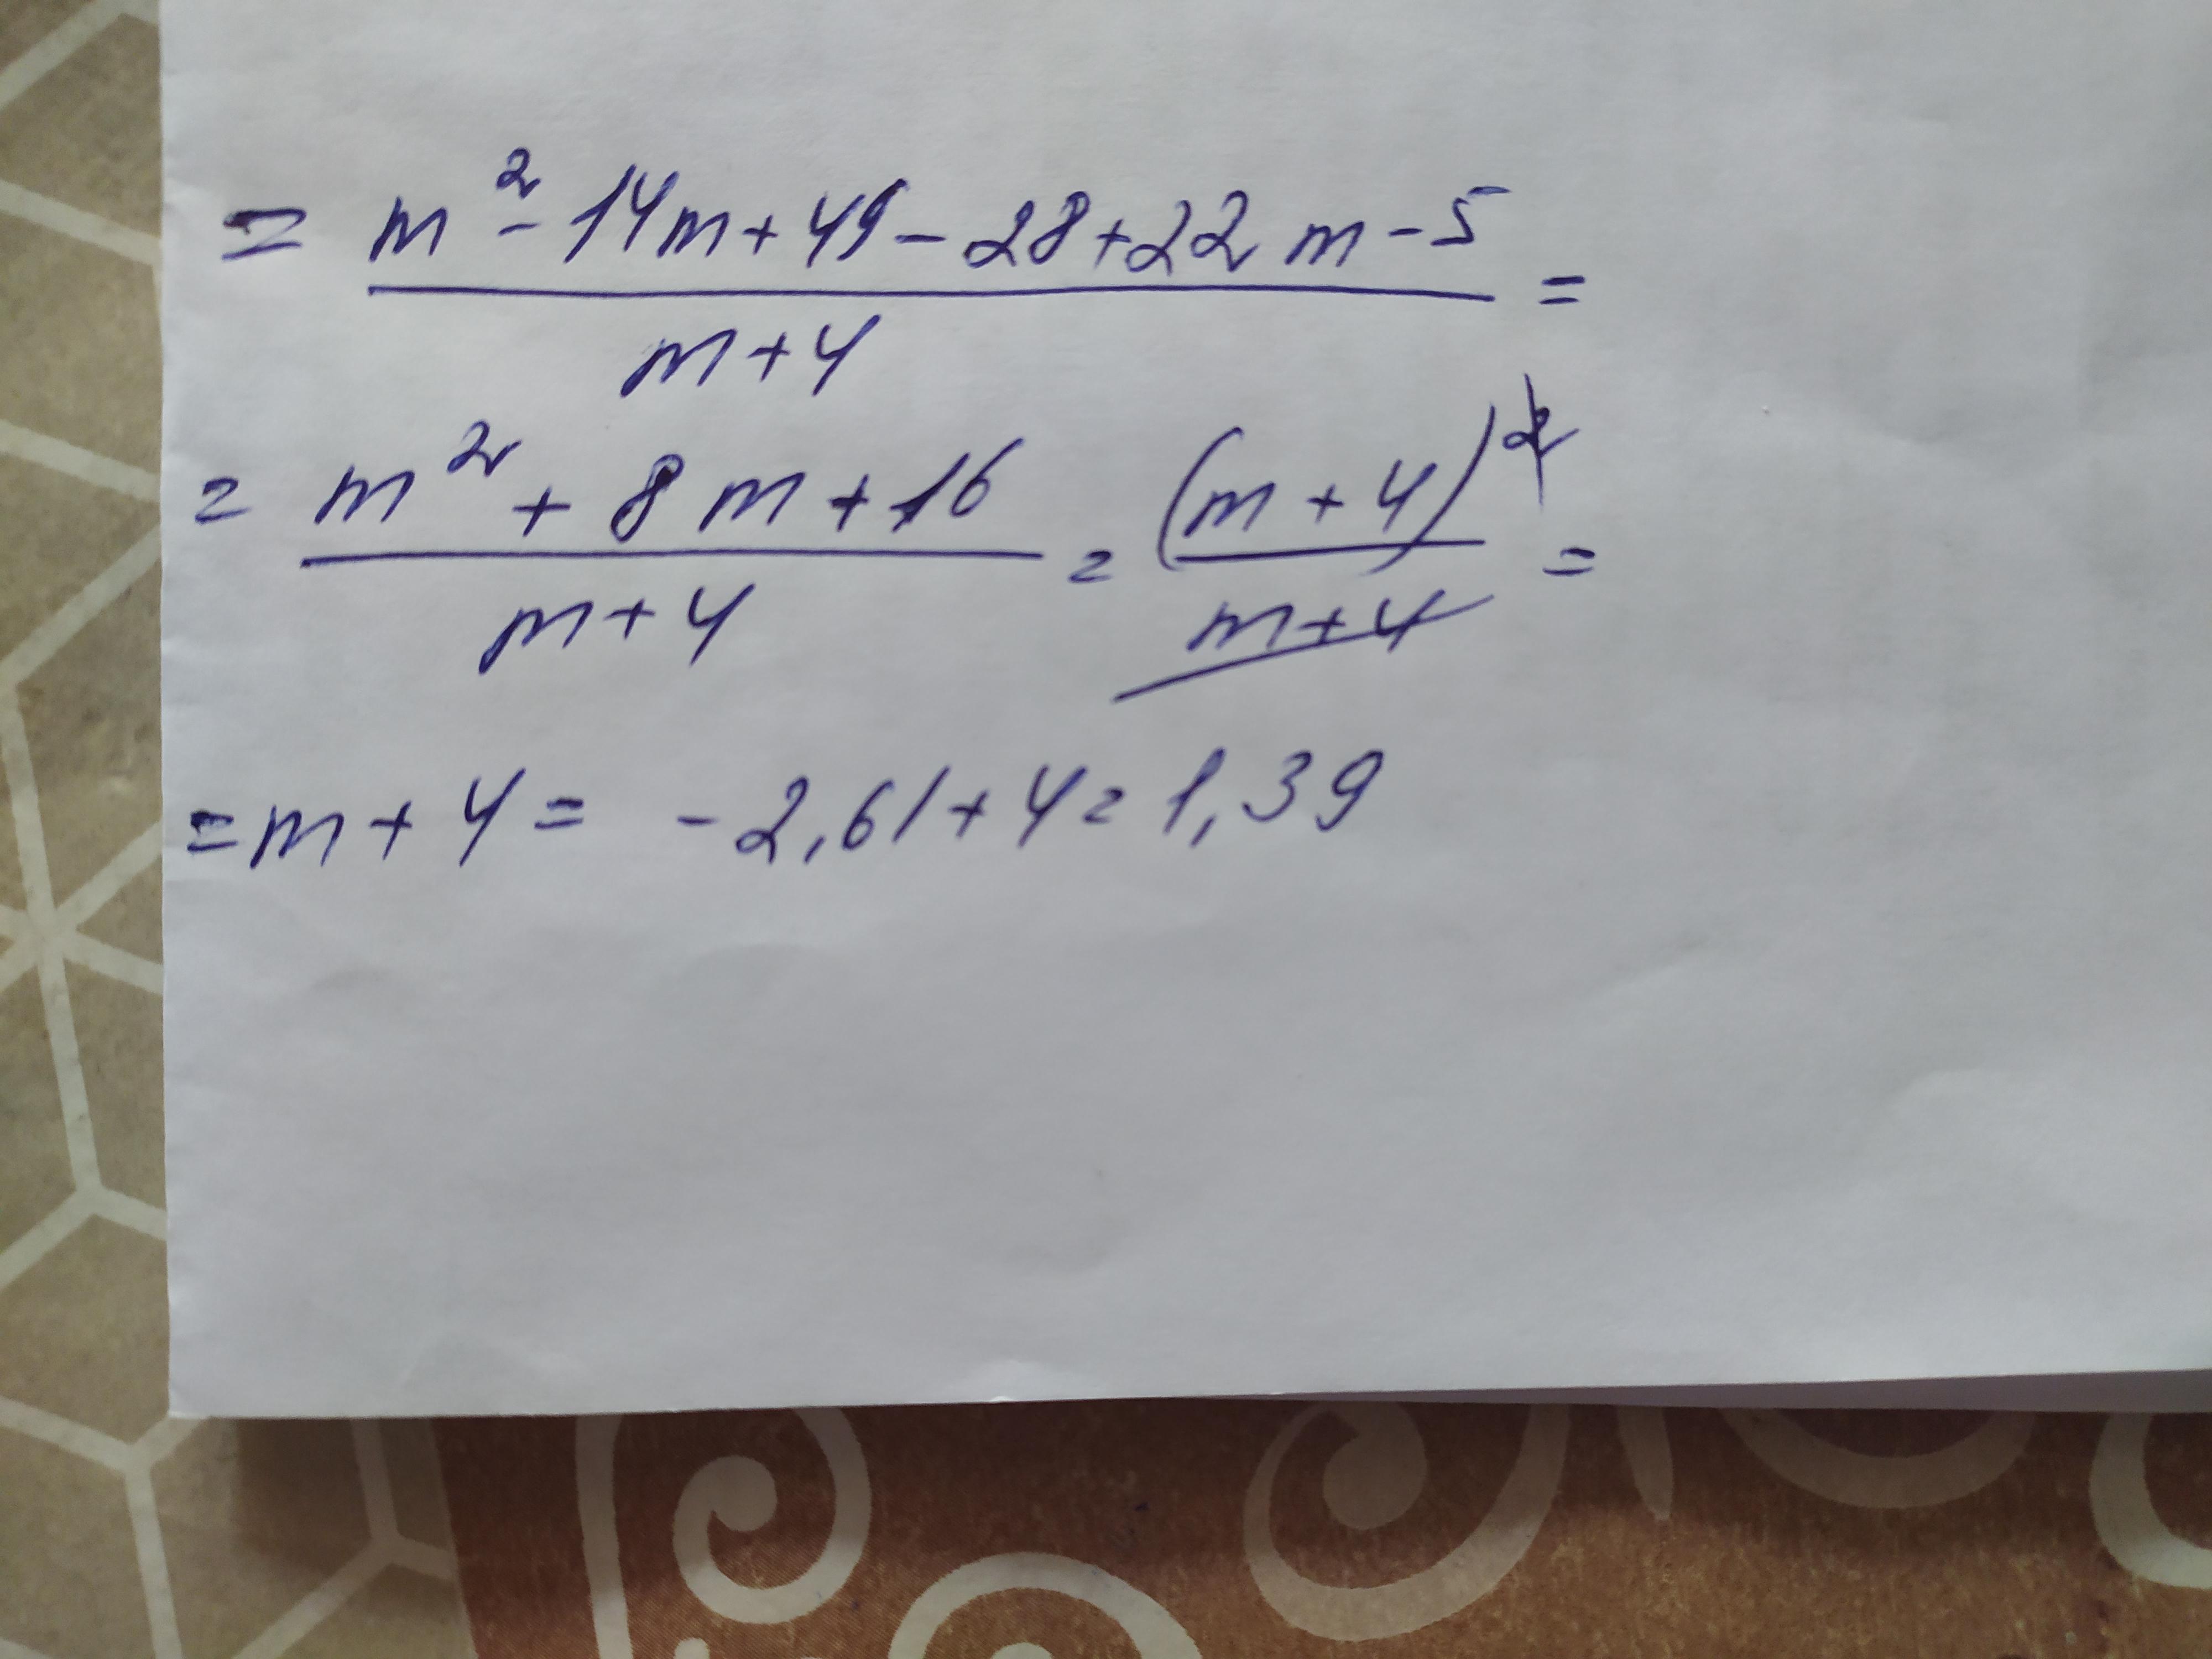 = (m² - 14m + 49 - 28 + 22m - 5)/(m + 4) =
= (m² + 8m + 16)/(m + 4) = (m + 4)²/(m + 4) =
= m + 4 = -2,61 + 4 = 1,39